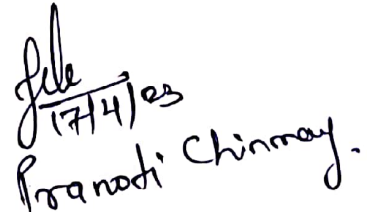 file
17/4/23
Pranoti Chinmay.